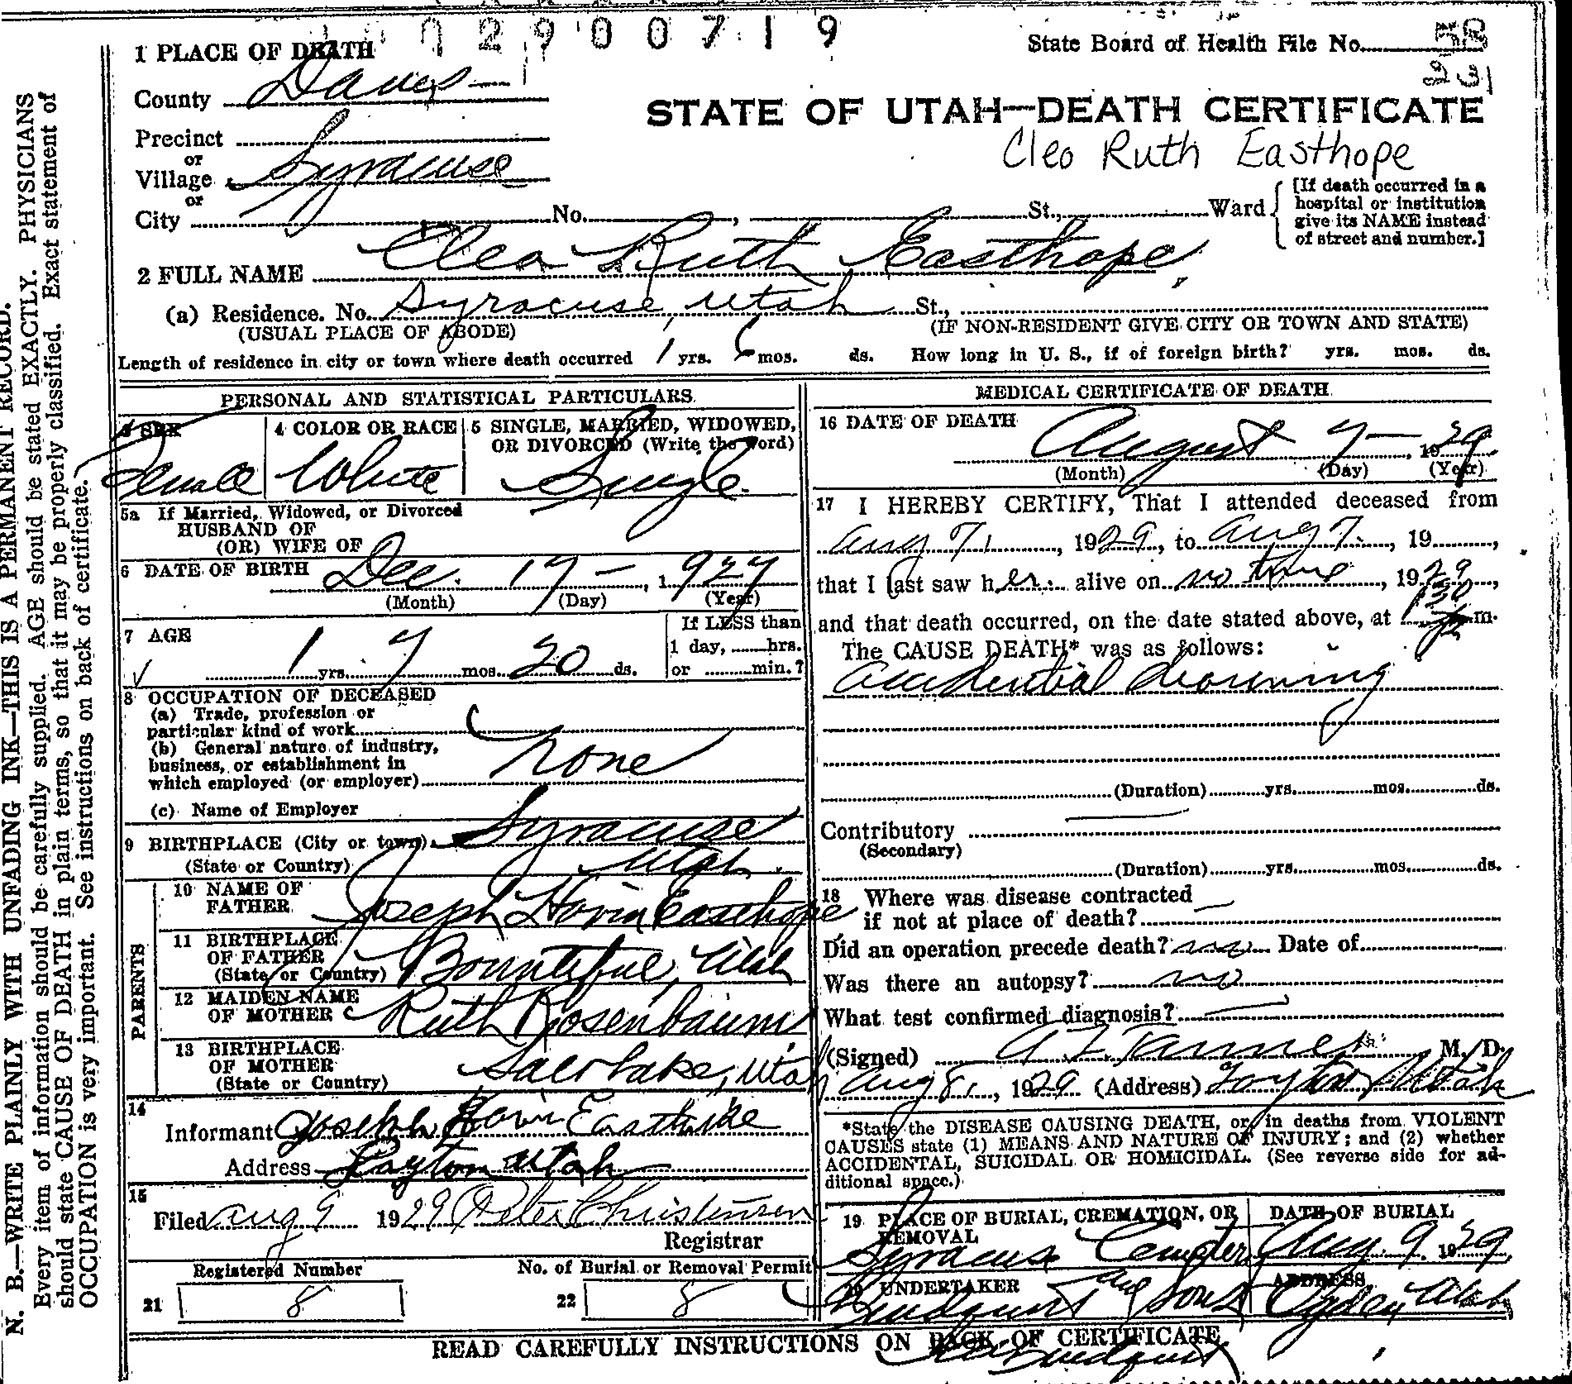 02900719
State Board of Health File No. 58
231
1 PLACE OF DEATH
County Davis
STATE OF UTAH—DEATH CERTIFICATE
Cleo Ruth Easthope
Precinct
or
Village Syracuse
or
City No. , St., Ward
[If death occurred in a
hospital or institution
give its NAME instead
of street and number.]
2 FULL NAME Cleo Ruth Easthope
(a) Residence. No. Syracuse, Utah St.,
(USUAL PLACE OF ABODE) (IF NON-RESIDENT GIVE CITY OR TOWN AND STATE)
Length of residence in city or town where death occurred 1 yrs. 6 mos. ds. How long in U. S., if of foreign birth? yrs. mos. ds.
PERSONAL AND STATISTICAL PARTICULARS
3 SEX 4 COLOR OR RACE 5 SINGLE, MARRIED, WIDOWED,
OR DIVORCED (Write the word)
Female White Single
5a If Married, Widowed, or Divorced
HUSBAND OF
(OR) WIFE OF
6 DATE OF BIRTH Dec. 17 — 1927
(Month) (Day) (Year)
7 AGE 1 yrs. 7 mos. 20 ds.
If LESS than
1 day, hrs.
or min.?
8 OCCUPATION OF DECEASED
(a) Trade, profession or
particular kind of work
(b) General nature of industry,
business, or establishment in
which employed (or employer) none
(c) Name of Employer
9 BIRTHPLACE (City or town) Syracuse
(State or Country) Utah.
PARENTS
10 NAME OF
FATHER Joseph Hovin Easthope
11 BIRTHPLACE
OF FATHER
(State or Country) Bountiful, Utah
12 MAIDEN NAME
OF MOTHER Ruth Rosenbaum
13 BIRTHPLACE
OF MOTHER
(State or Country) Salt Lake, Utah
14
Informant Joseph Hovin Easthope
Address Layton Utah
15
Filed Aug 9 1929 Peter Christensen
Registrar
Registered Number No. of Burial or Removal Permit
21 8 22 8
MEDICAL CERTIFICATE OF DEATH
16 DATE OF DEATH August 7 — 1929
(Month) (Day) (Year)
17 I HEREBY CERTIFY, That I attended deceased from
Aug 7, 1929, to Aug 7, 19
that I last saw her alive on no time, 1929
and that death occurred, on the date stated above, at 1:30 pm.
The CAUSE DEATH* was as follows:
Accidential drowning
(Duration) yrs. mos. ds.
Contributory
(Secondary)
(Duration) yrs. mos. ds.
18 Where was disease contracted
if not at place of death?
Did an operation precede death? no Date of
Was there an autopsy? no
What test confirmed diagnosis?
(Signed) Tanner M. D.
Aug 8, 1929 (Address) Layton Utah
*State the DISEASE CAUSING DEATH, or, in deaths from VIOLENT
CAUSES state (1) MEANS AND NATURE OF INJURY; and (2) whether
ACCIDENTAL, SUICIDAL OR HOMICIDAL. (See reverse side for ad-
ditional space.)
19 PLACE OF BURIAL, CREMATION, OR
REMOVAL
DATE OF BURIAL
Syracuse Cemetery Aug. 9 1929
20 UNDERTAKER ADDRESS
Lindquist and Sons Ogden, Utah
READ CAREFULLY INSTRUCTIONS ON BACK OF CERTIFICATE
Lindquist
N. B.—WRITE PLAINLY WITH UNFADING INK—THIS IS A PERMANENT RECORD.
Every item of information should be carefully supplied. AGE should be stated EXACTLY. PHYSICIANS
should state CAUSE OF DEATH in plain terms, so that it may be properly classified. Exact statement of
OCCUPATION is very important. See instructions on back of certificate.